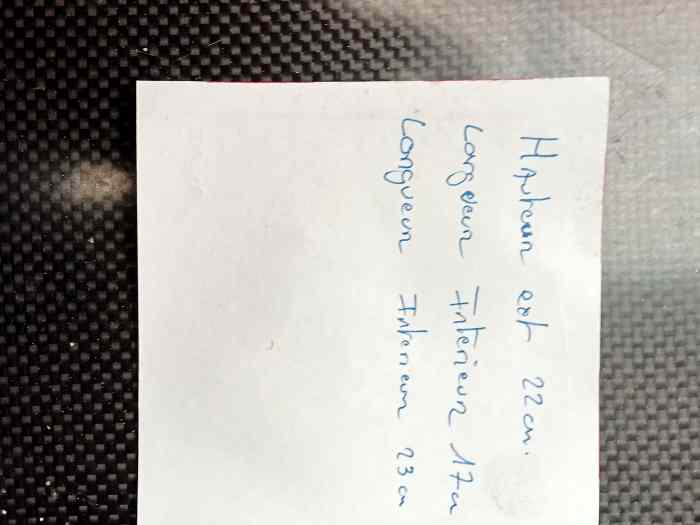 Hauteur ext 22cm.
Largeur Intérieur 17cm
Longueur Interieur 23cm